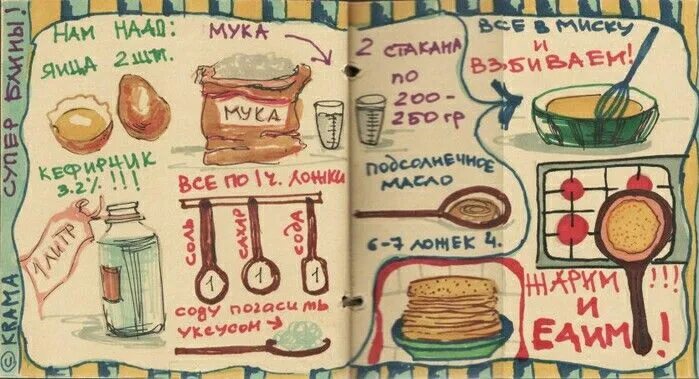 СУПЕР БЛИНЫ!
© KRAMA
НАМ НАДО:
ЯИЦА 2 ШТ.
МУКА
МУКА
2 СТАКАНА
ПО
200-
250 ГР
КЕФИРЧИК
3.2% !!!
1 ЛИТР
ВСЕ ПО 1 Ч. ЛОЖКИ
СОЛЬ
САХАР
СОДА
1
1
1
СОДУ ПОГАСИТЬ
УКСУСОМ
ПОДСОЛНЕЧНОЕ
МАСЛО
6-7 ЛОЖЕК Ч.
ВСЕ В МИСКУ
И
ВЗБИВАЕМ!
ЖАРИМ !!!
И
ЕДИМ!